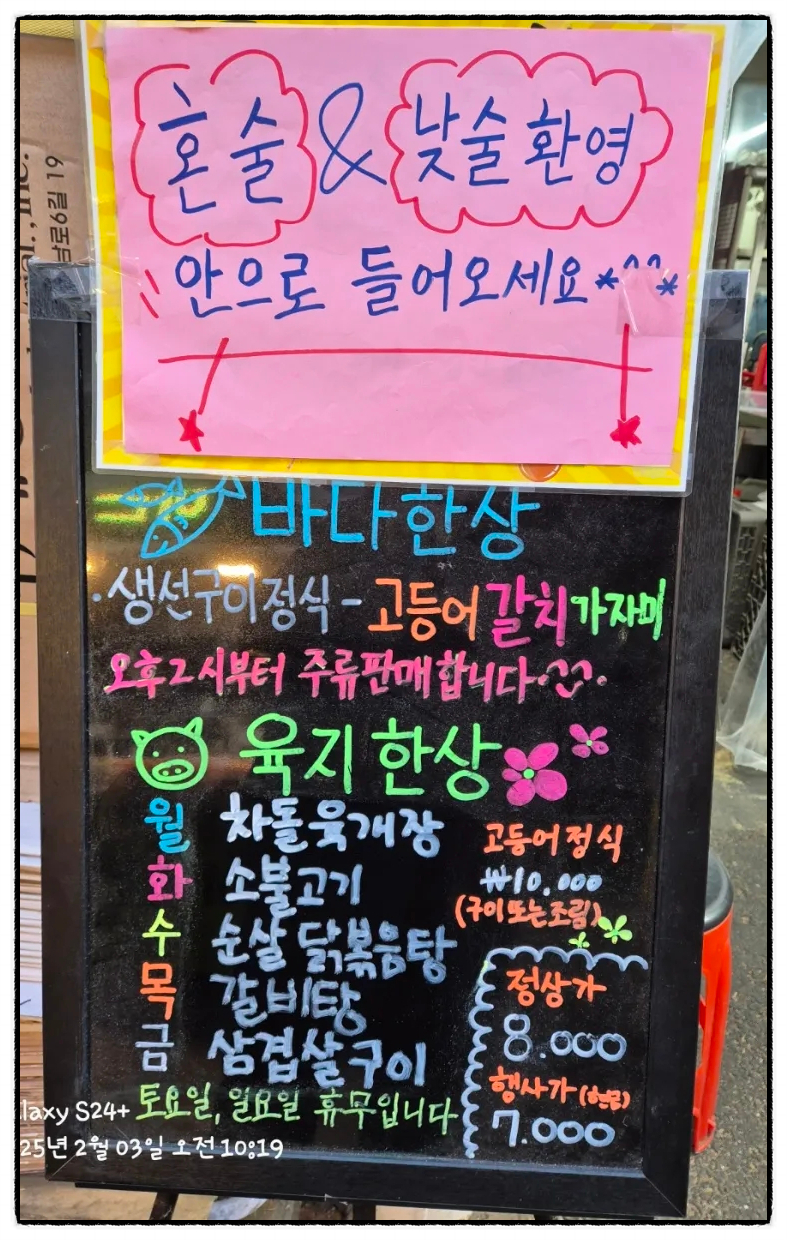 혼술 & 낮술 환영
안으로 들어오세요 *^^*
바다한상
·생선구이정식 - 고등어 갈치 가자미
오후2시부터 주류판매합니다·^^·
육지 한상
월 차돌육개장
화 소불고기
수 순살 닭볶음탕
목 갈비탕
금 삼겹살구이
고등어정식
₩10.000
(구이또는조림)
정상가
8.000
행사가 (현금)
7.000
토요일, 일요일 휴무입니다
laxy S24+
25년 2월 03일 오전 10:19
남로6길 19
Inc.